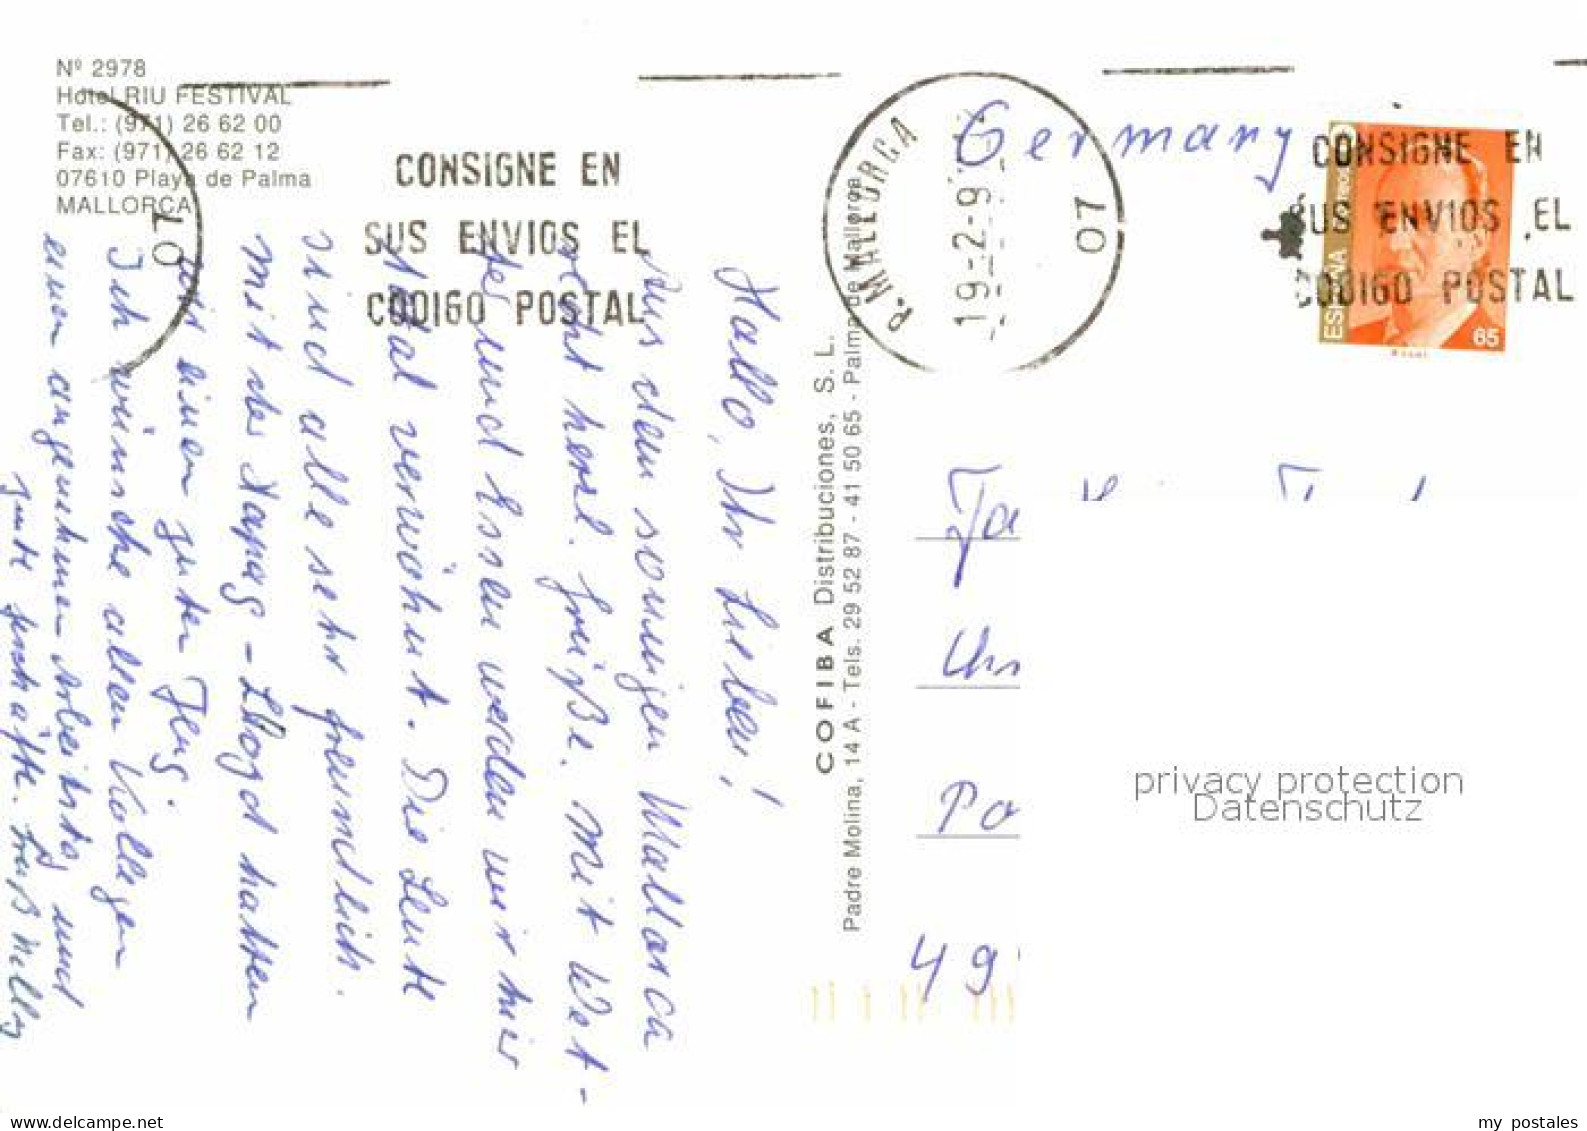 Nº 2978
Hotel RIU FESTIVAL
Tel.: (971) 26 62 00
Fax: (971) 26 62 12
07610 Playa de Palma
MALLORCA
07
CONSIGNE EN
SUS ENVIOS EL
CODIGO POSTAL
Hallo, Ihr Lieben!
Aus dem sonnigen Mallorca
herzl. Grüße. Mit Wet-
ter und Essen werden wir hier
total verwöhnt. Die Leute
sind alle sehr freundlich.
Mit der Hapag-Lloyd hatten
wir einen guten Flug.
Ich wünsche allen Kollegen
einen angenehmen Arbeitstag und
gute Geschäfte. Gruß Nelly
COFIBA Distribuciones, S. L.
Padre Molina, 14 A - Tels. 29 52 87 - 41 50 65 - Palma de Mallorca
P. MALLORCA
19-2-9
07
Germany
CONSIGNE EN
SUS ENVIOS EL
CODIGO POSTAL
ESPAÑA
65
Ja
Po
49
privacy protection
Datenschutz
delcampe.net
my postales